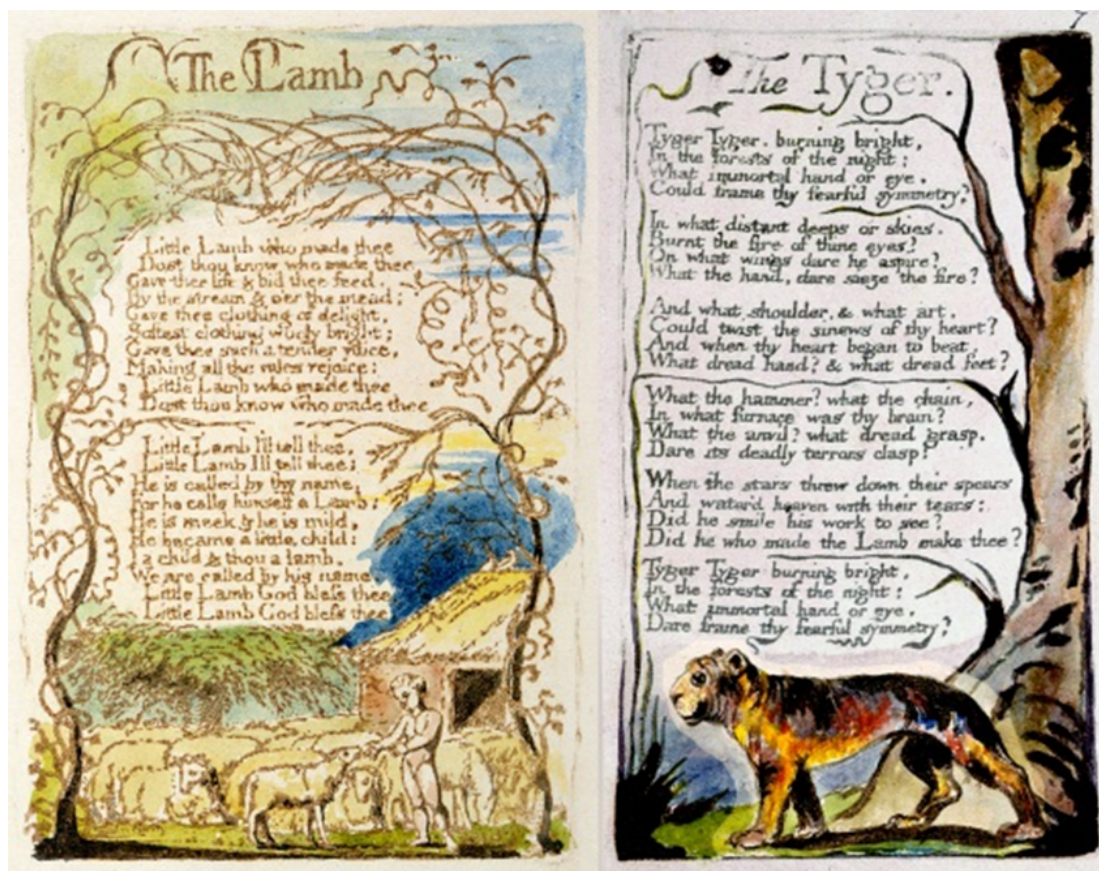 The Lamb
Little Lamb who made thee
Dost thou know who made thee
Gave thee life & bid thee feed.
By the stream & o'er the mead;
Gave thee clothing of delight,
Softest clothing wooly bright;
Gave thee such a tender voice,
Making all the vales rejoice:
Little Lamb who made thee
Dost thou know who made thee
Little Lamb I'll tell thee,
Little Lamb I'll tell thee;
He is called by thy name,
For he calls himself a Lamb:
He is meek & he is mild,
He became a little child:
I a child & thou a lamb,
We are called by his name.
Little Lamb God bless thee.
Little Lamb God bless thee.
The Tyger.
Tyger Tyger, burning bright,
In the forests of the night;
What immortal hand or eye,
Could frame thy fearful symmetry?
In what distant deeps or skies.
Burnt the fire of thine eyes?
On what wings dare he aspire?
What the hand, dare sieze the fire?
And what shoulder, & what art,
Could twist the sinews of thy heart?
And when thy heart began to beat,
What dread hand? & what dread feet?
What the hammer? what the chain,
In what furnace was thy brain?
What the anvil? what dread grasp,
Dare its deadly terrors clasp!
When the stars threw down their spears
And water'd heaven with their tears:
Did he smile his work to see?
Did he who made the Lamb make thee?
Tyger Tyger burning bright,
In the forests of the night:
What immortal hand or eye,
Dare frame thy fearful symmetry?